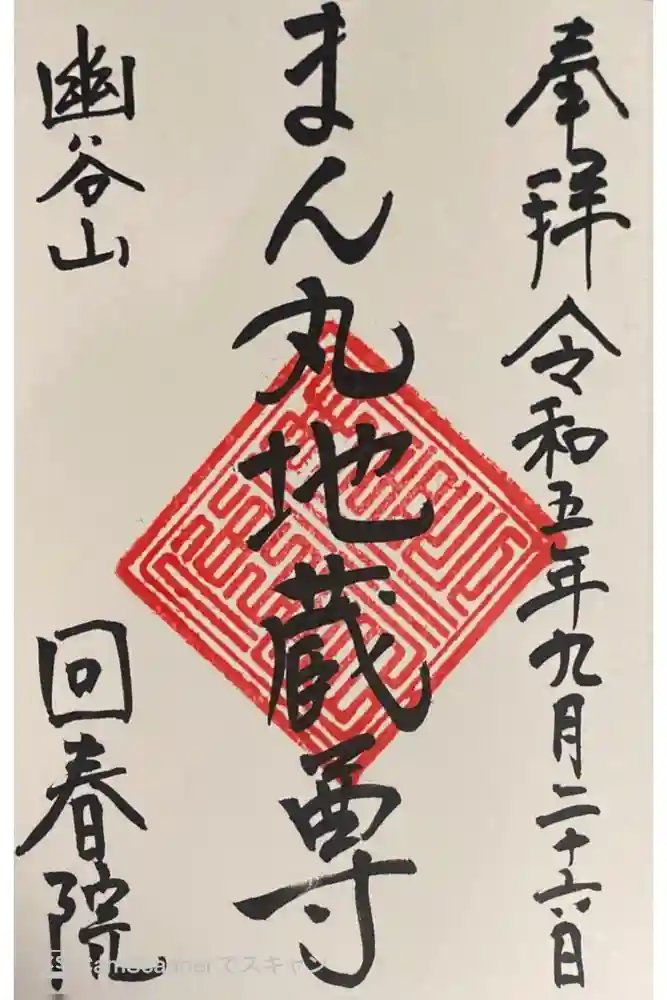 奉拝 令和五年九月二十六日
まん丸地蔵尊
幽谷山
回春院
でスキャン